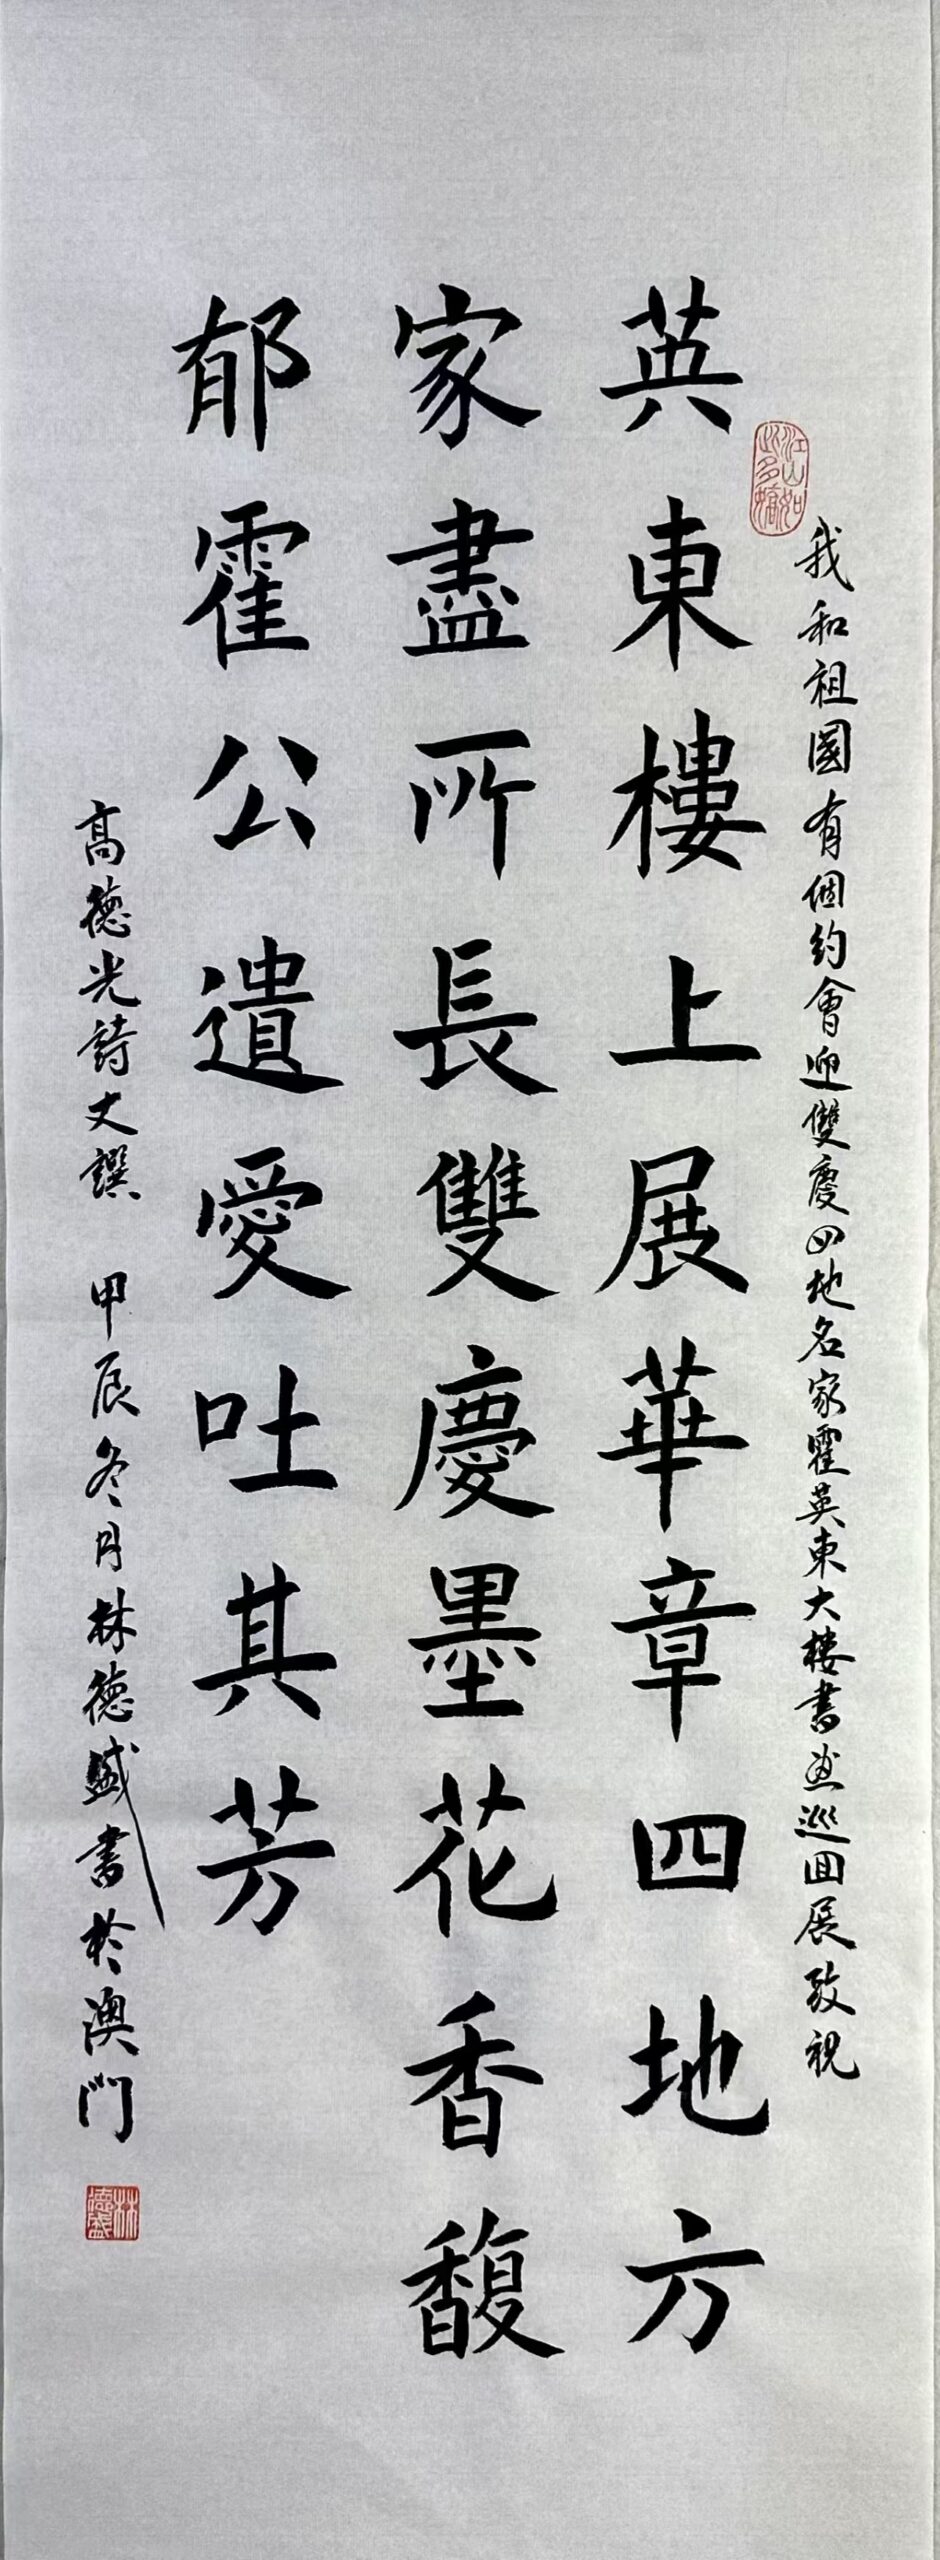 我和祖國有個約會迎雙慶四地名家霍英東大樓書画巡回展致祝
江山如此多嬌
英東樓上展華章四地方
家盡所長雙慶墨花香馥
郁霍公遺愛吐其芳
高德光詩文撰 甲辰冬月林德盛書於澳門
林德盛